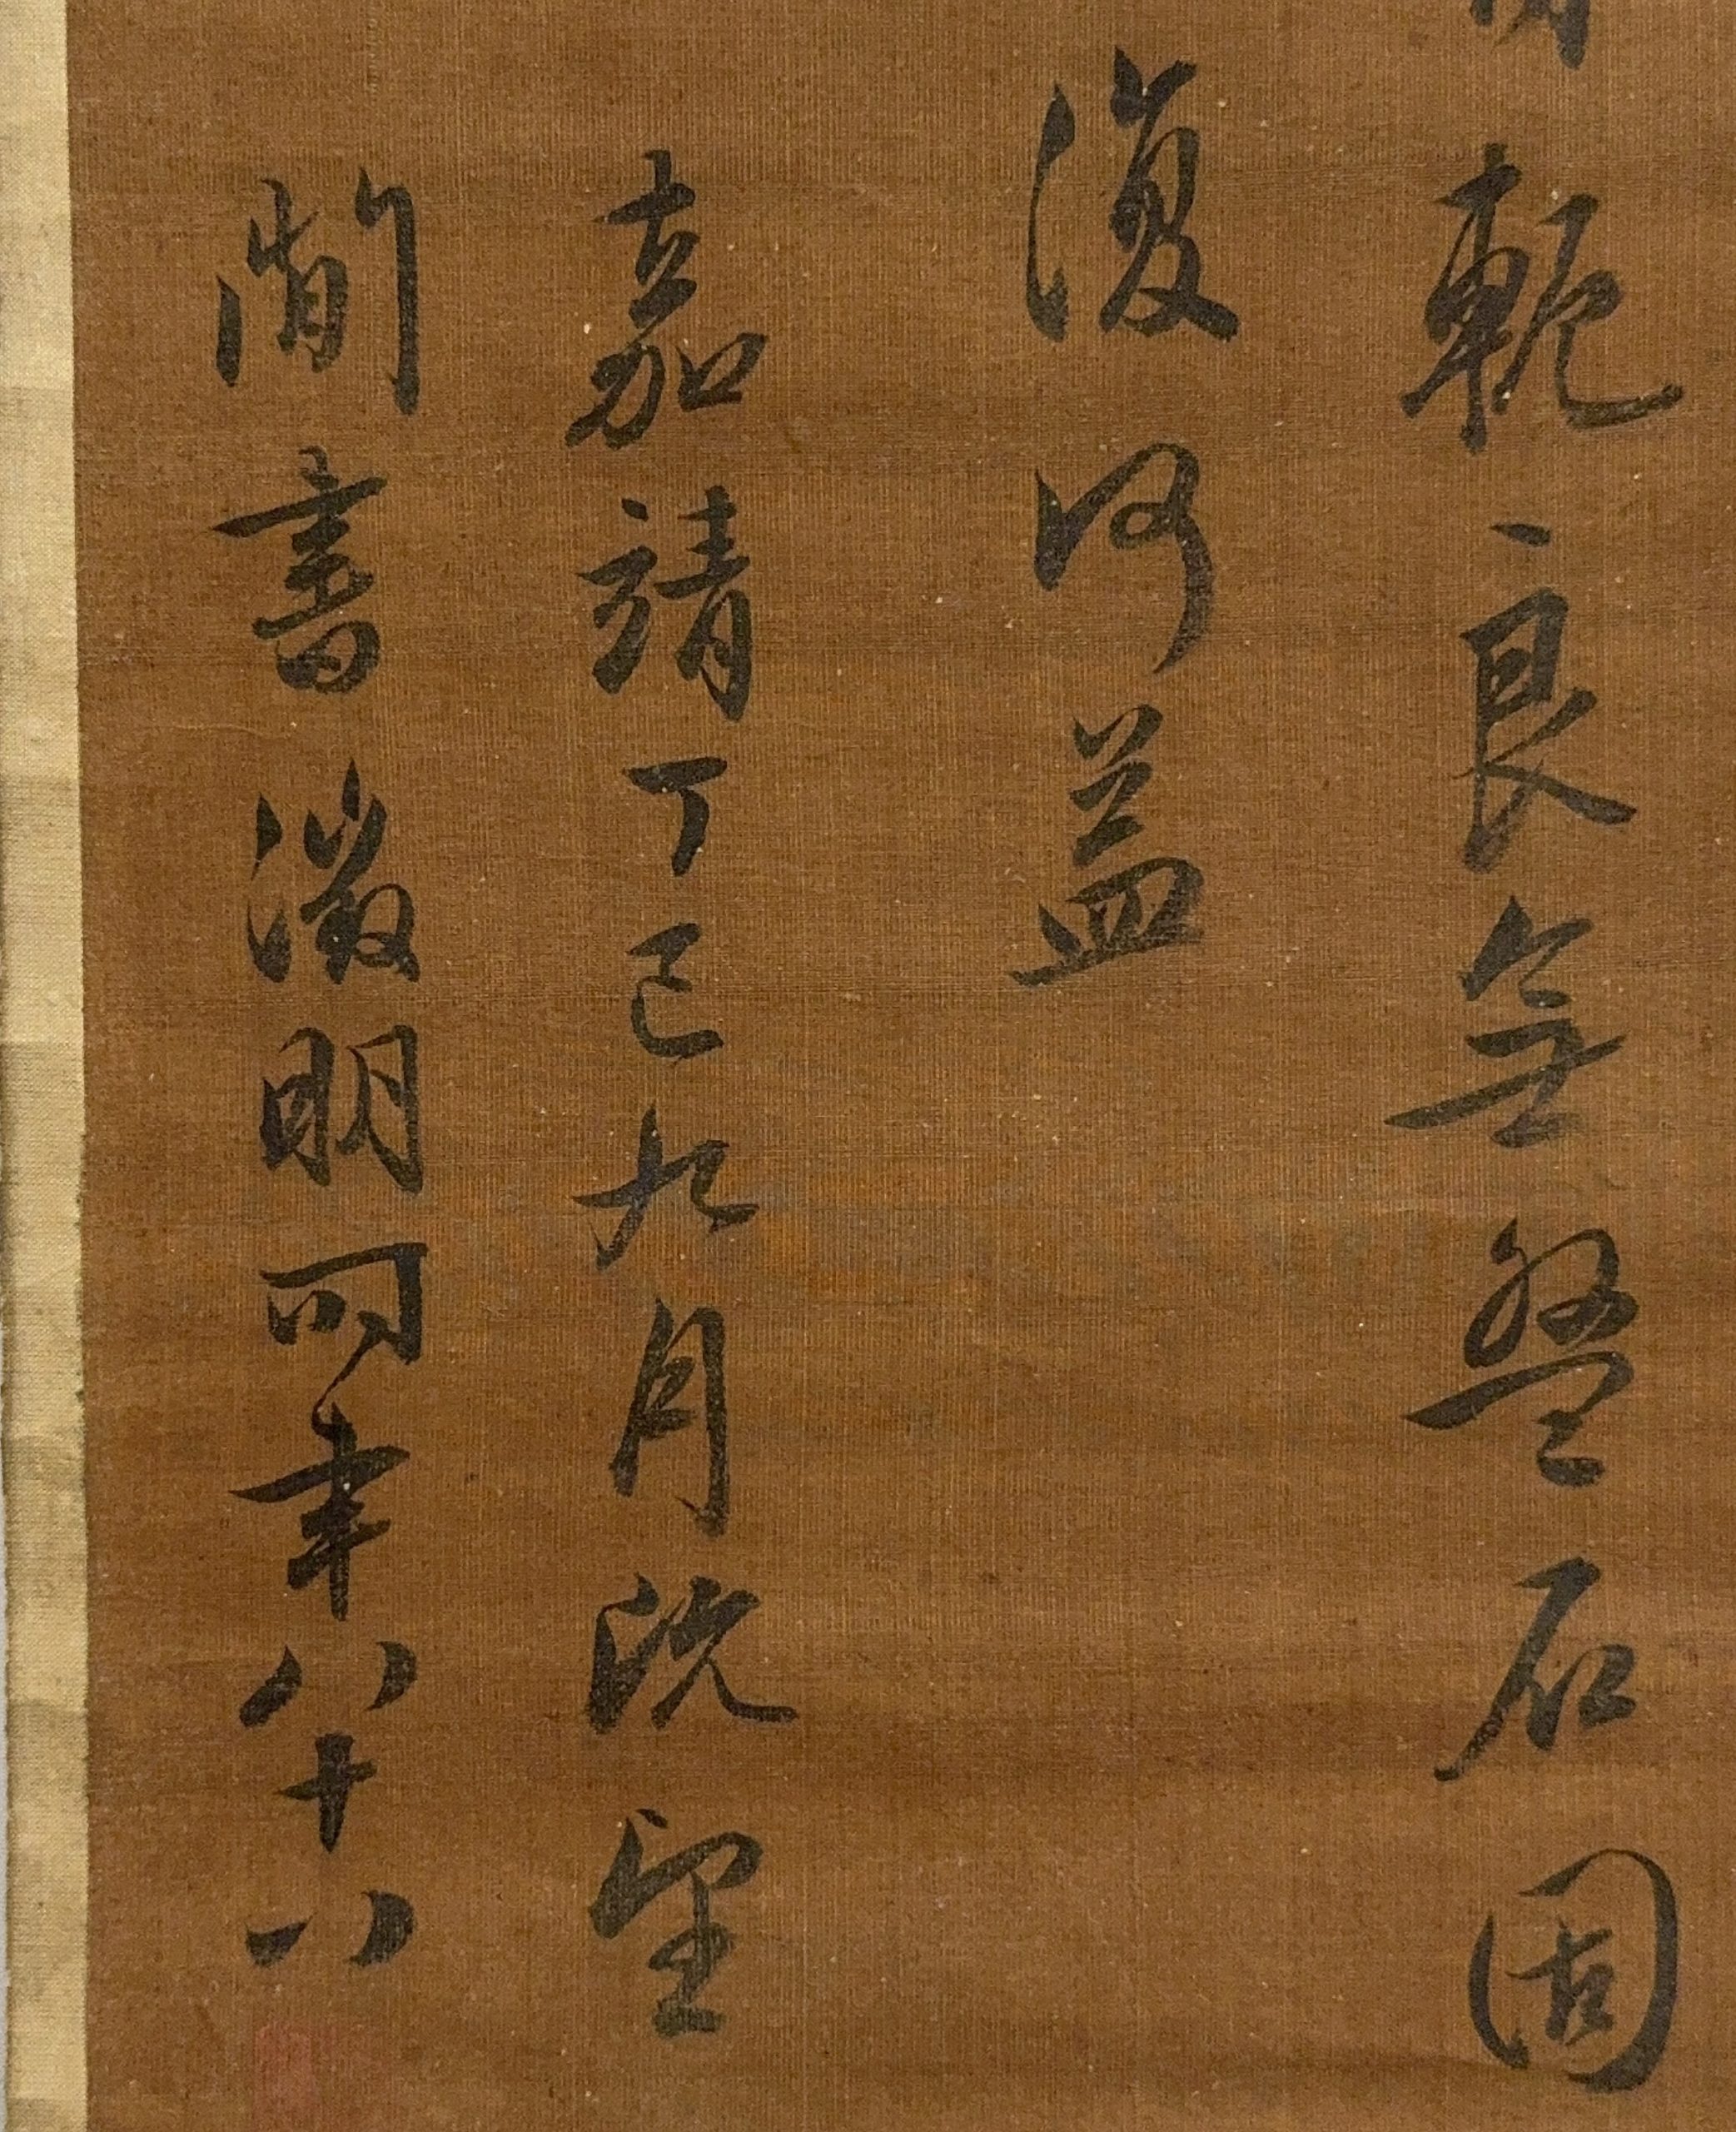 軛良無盤石固
復何益
嘉靖丁巳九月既望
閒書徵明時年八十八